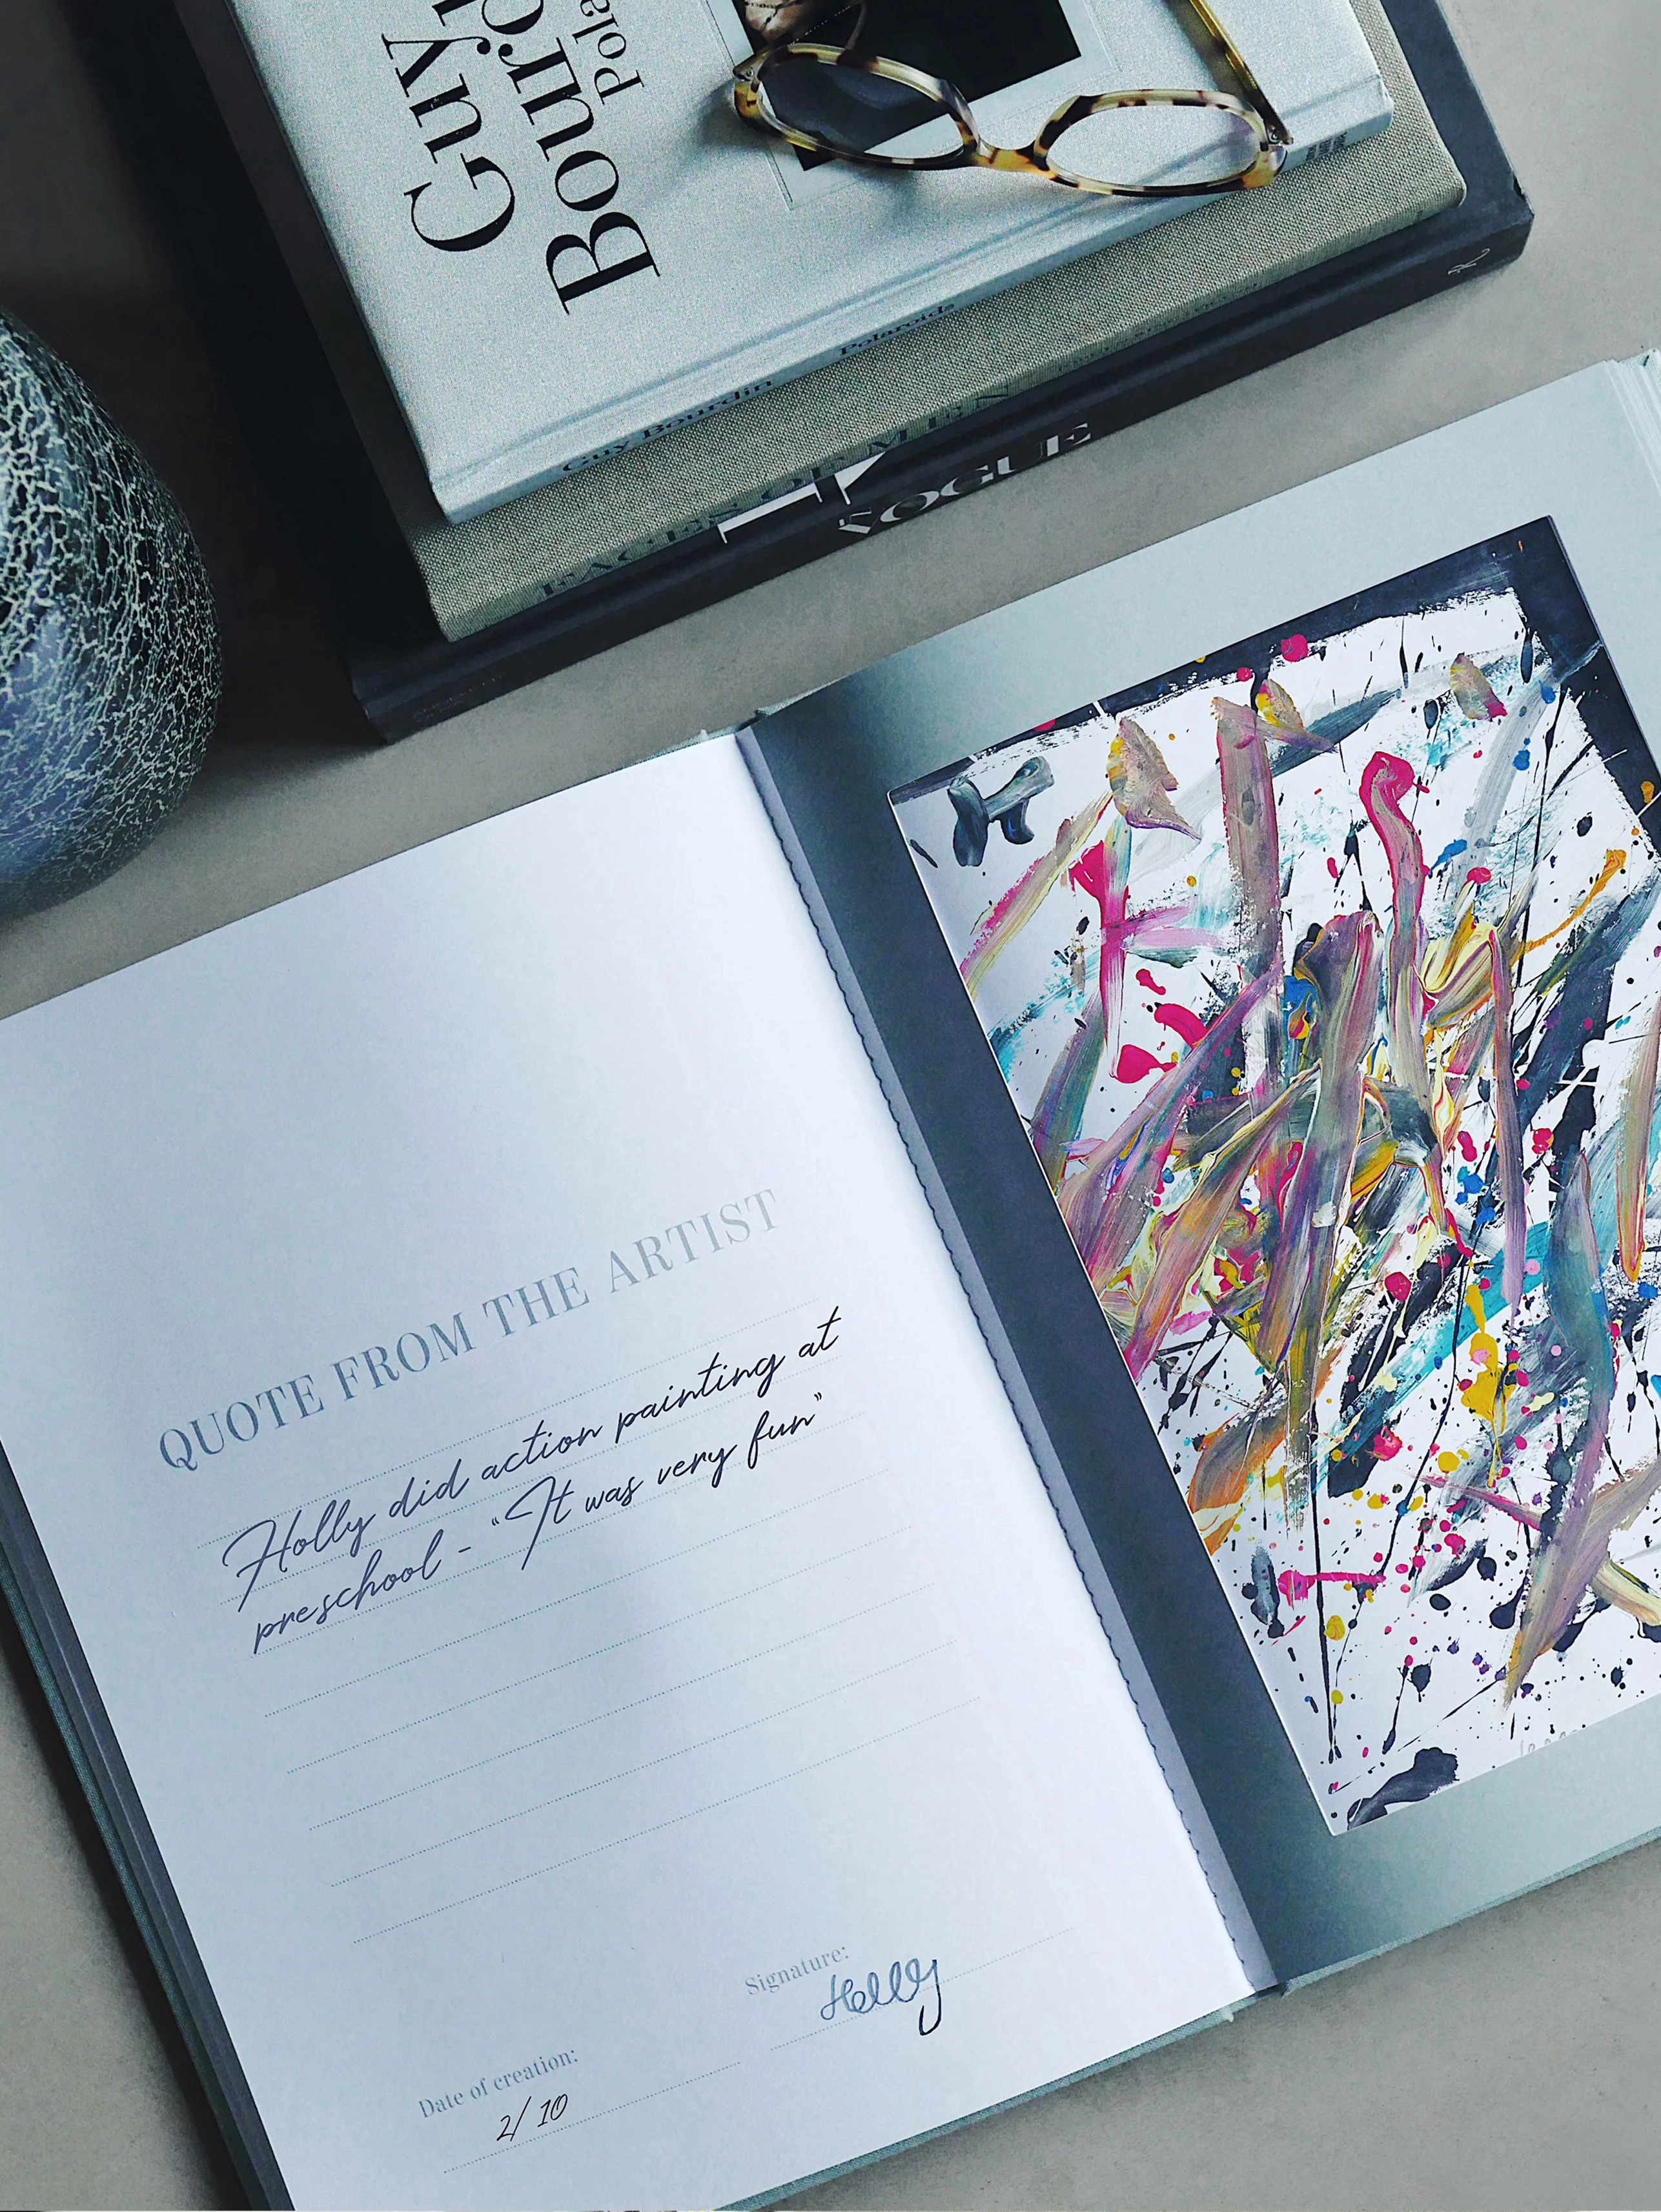 Guy
Guy Bourdin
Polaroids
FACES OF
VOGUE
QUOTE FROM THE ARTIST
Holly did action painting at
preschool - "It was very fun"
Signature:
Holly
Date of creation:
2/10